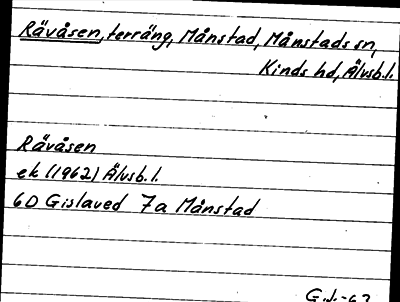 Rävåsen, terräng, Månstad, Månstads sn,
Kinds hd, Älvsb.l.
Rävåsen
ek (1962) Älvsb.l.
6D Gislaved 7a Månstad